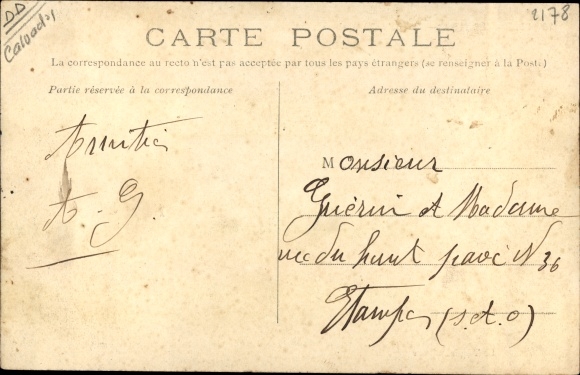 DD
Calvados
2178
CARTE POSTALE
La correspondance au recto n'est pas acceptée par tous les pays étrangers (se renseigner à la Poste)
Partie réservée à la correspondance
Adresse du destinataire
Amitiés
A. G.
Monsieur
Guérin et Madame
rue du haut pavé N 36
Etampes (S. et O)